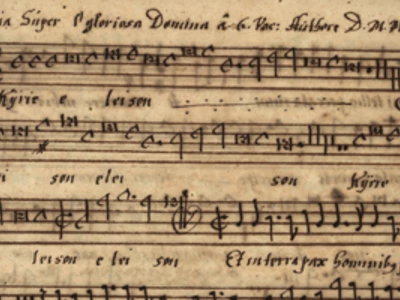 ia Super Gloriosa Domina â 6. Voc: Authore D. M.
Kyrie e leison
i son elei son Kyrie
leison e lei son Et in terra pax hominiby